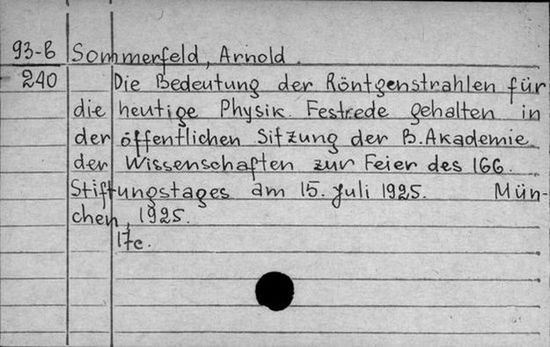 93-B Sommerfeld, Arnold
240 Die Bedeutung der Röntgenstrahlen für
die heutige Physik. Festrede gehalten in
der öffentlichen Sitzung der B. Akademie
der Wissenschaften zur Feier des 166.
Stiftungstages am 15. Juli 1925. Mün-
chen, 1925.
17c.